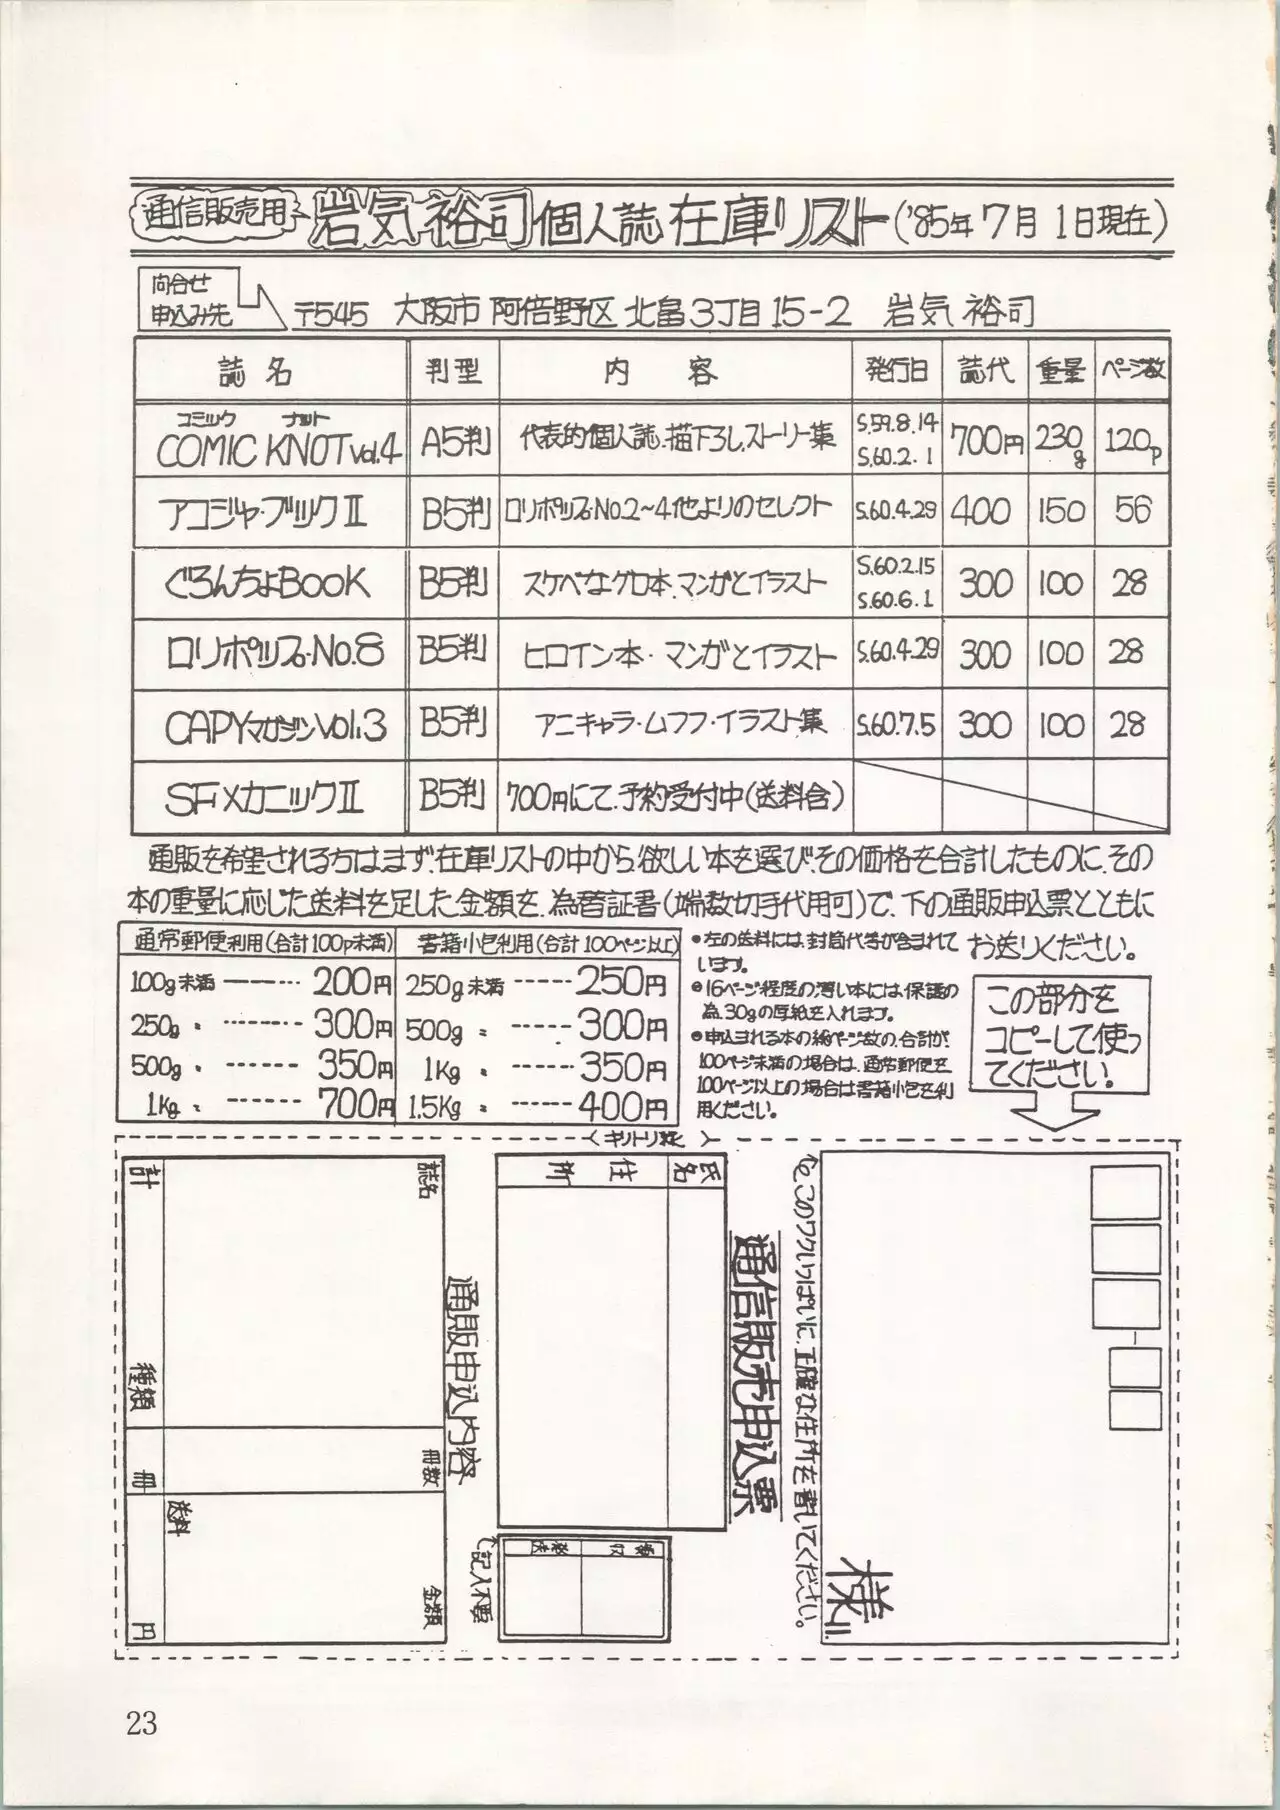 通信販売用 岩気裕司 個人誌 在庫リスト('85年7月1日現在)
問合せ
申込み先
〒545 大阪市 阿倍野区 北畠3丁目15-2 岩気 裕司
誌名 判型 内容 発行日 誌代 重量 ページ数
コミック ナット
COMIC KNOT vol.4 A5判 代表的個人誌.描下ろし.ストーリー集 S.59.8.14 S.60.2.1 700円 230g 120p
アコジャ・ブックⅡ B5判 ロリポップ・No.2~4他よりのセレクト S.60.4.29 400 150 56
ぐろんちょBOOK B5判 スケベなグロ本.マンガとイラスト S.60.2.15 S.60.6.1 300 100 28
ロリポップ・No.8 B5判 ヒロイン本・マンガとイラスト S.60.4.29 300 100 28
CAPYマガジンvol.3 B5判 アニキャラ・ムフフ・イラスト集 S.60.7.5 300 100 28
SFメカニックⅡ B5判 700円にて.予約受付中(送料含)
通販を希望される方は.まず.在庫リストの中から.欲しい本を選び.その価格を合計したものに.その
本の重量に応じた送料を足した金額を.為替証書(端数切手代用可)で.下の通販申込票とともに
お送りください。
通常郵便利用(合計100p未満)
100g未満 200円
250g 〃 300円
500g 〃 350円
1kg 〃 700円
書籍小包利用(合計100ページ以上)
250g未満 250円
500g 〃 300円
1kg 〃 350円
1.5kg 〃 400円
●左の送料には.封筒代等が含まれて
います。
●16ページ程度の薄い本には.保護の
為.30gの厚紙を入れます。
●申込まれる本の総ページ数の.合計が.
100ページ未満の場合は.通常郵便を
100ページ以上の場合は書籍小包を利
用ください。
この部分を
コピーして使っ
てください。
キリトリ線
様
このワクいっぱいに.正確な住所を書いてください。
通信販売申込票
氏名
住所
受領
発送
記入不要
通販申込内容
誌名 冊数 金額
送料
計 種類 冊 円
23